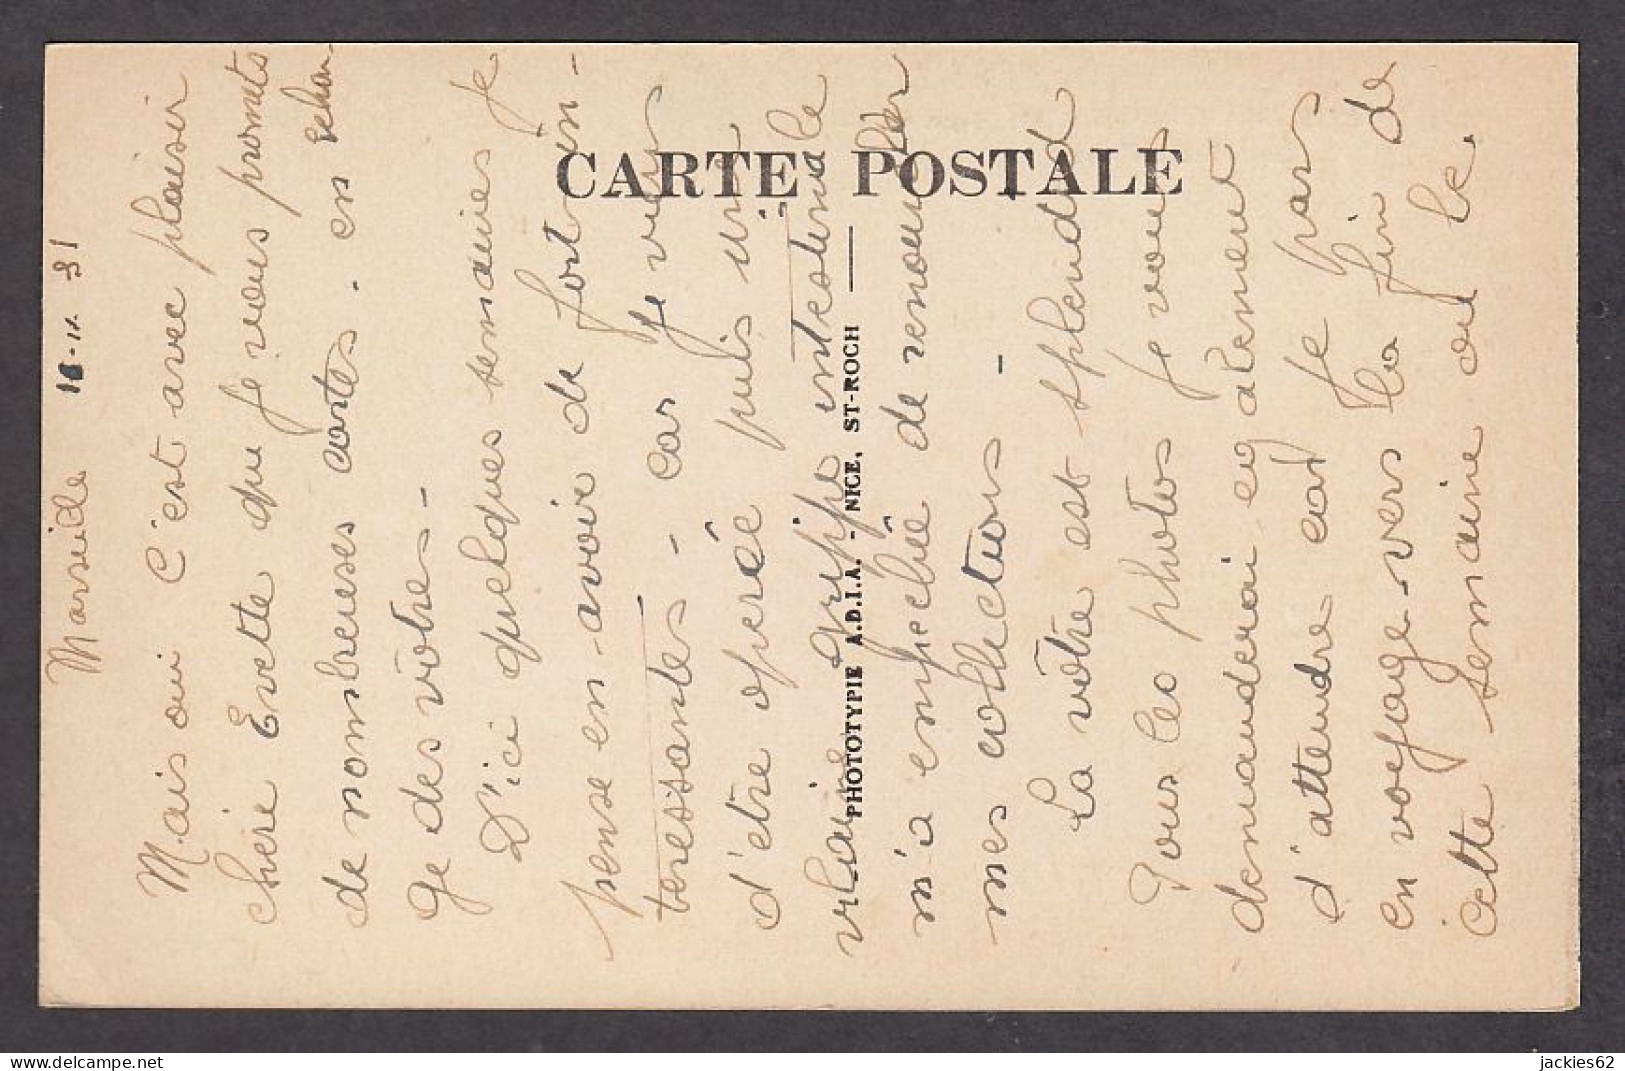 Marseille 16-11-31
Mais oui c'est avec plaisir
chère Evette que je vous promets
de nombreuses cartes. en échan-
ge des vôtres -
D'ici quelques semaines je
pense en avoir de fort in-
téressantes - car je viens
d'être opérée puis une
vilaine grippe intestinale
m'a empêchée de renouveler
mes collections -
La vôtre est splendid
Pour les photos je vous
demanderai également
d'attendre car je pars
en voyage vers la fin de
cette semaine ou le.
CARTE POSTALE
PHOTOTYPIE A.D.I.A. - NICE, ST-ROCH
jackies62